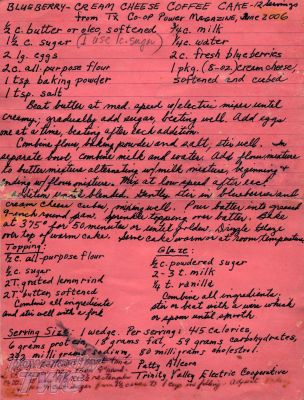 BLUEBERRY-CREAM CHEESE COFFEE CAKE-12 servings
from TX Co-op Power Magazine, June 2006
½ c. butter or oleo, softened ¾ c. milk
1½ c. sugar (I use 1c. sugar) ¼ c. water
2 lg. eggs 2 c. fresh blueberries
2 c. all-purpose flour 1 pkg. (8 oz.) cream cheese,
1 tsp baking powder softened and cubed
1 tsp. salt
Beat butter at med. speed w/electric mixer until
creamy; gradually add sugar, beating well. Add eggs
one at a time, beating after each addition.
Combine flour, baking powder and salt, stir well. In
separate bowl, combine milk and water. Add flour mixture
to butter mixture alternating w/milk mixture, beginning &
ending w/flour mixture. Mix at low speed after each
addition until blended. Gently stir in blueberries and
cream cheese cubes, mixing well. Pour batter into greased
9-inch round pan. Sprinkle topping over batter. Bake
at 375° for 50 minutes or until golden. Drizzle glaze
over top of warm cake. Serve cake warm or at room temperature
Topping: Glaze:
½ c. all-purpose flour ½ c. powdered sugar
½ c. sugar 2-3 t. milk
2T. grated lemon rind ¼ t. vanilla
2T. butter, softened Combine all ingredients;
Combine all ingredients stir or beat with a wire whisk
and stir well with a fork or spoon until smooth
Serving Size: 1 wedge. Per serving: 415 calories,
6 grams protein, 18 grams fat, 59 grams carbohydrates,
333 milligrams sodium, 80 milligrams cholesterol.
Patty Allcorn
Trinity Valley Electric Cooperative